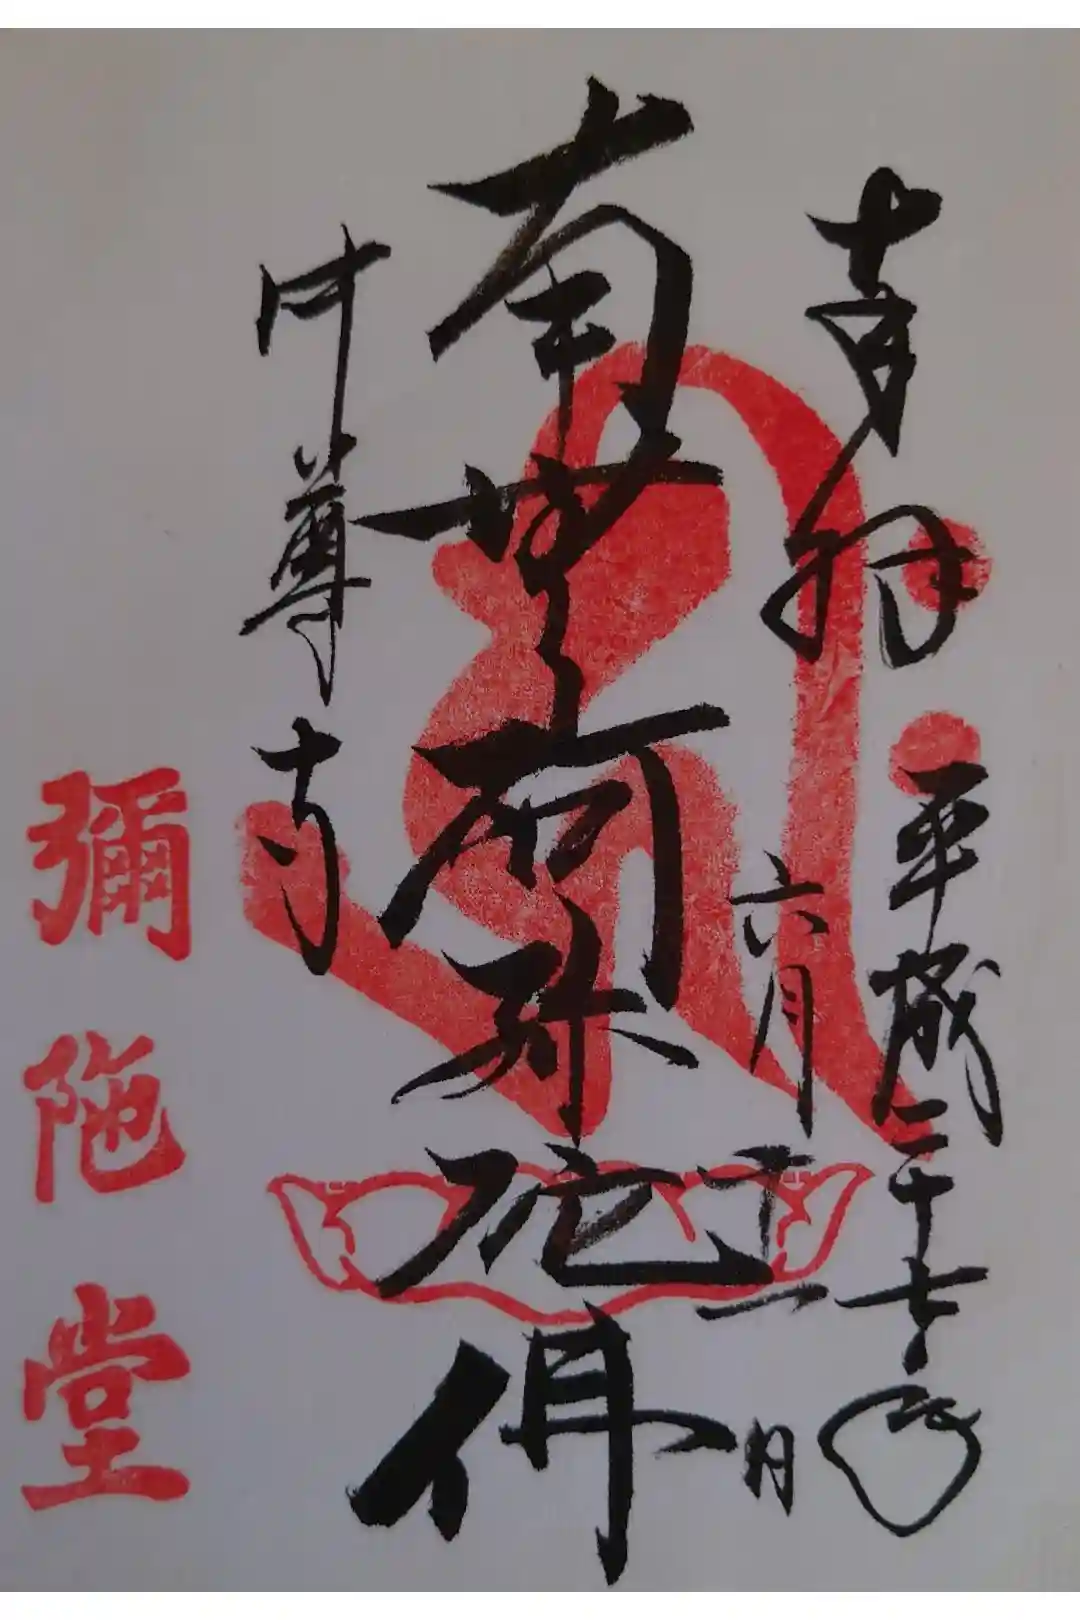 奉拝
平成二十七年
六月十一日
南無阿弥陀佛
中尊寺
彌陁堂